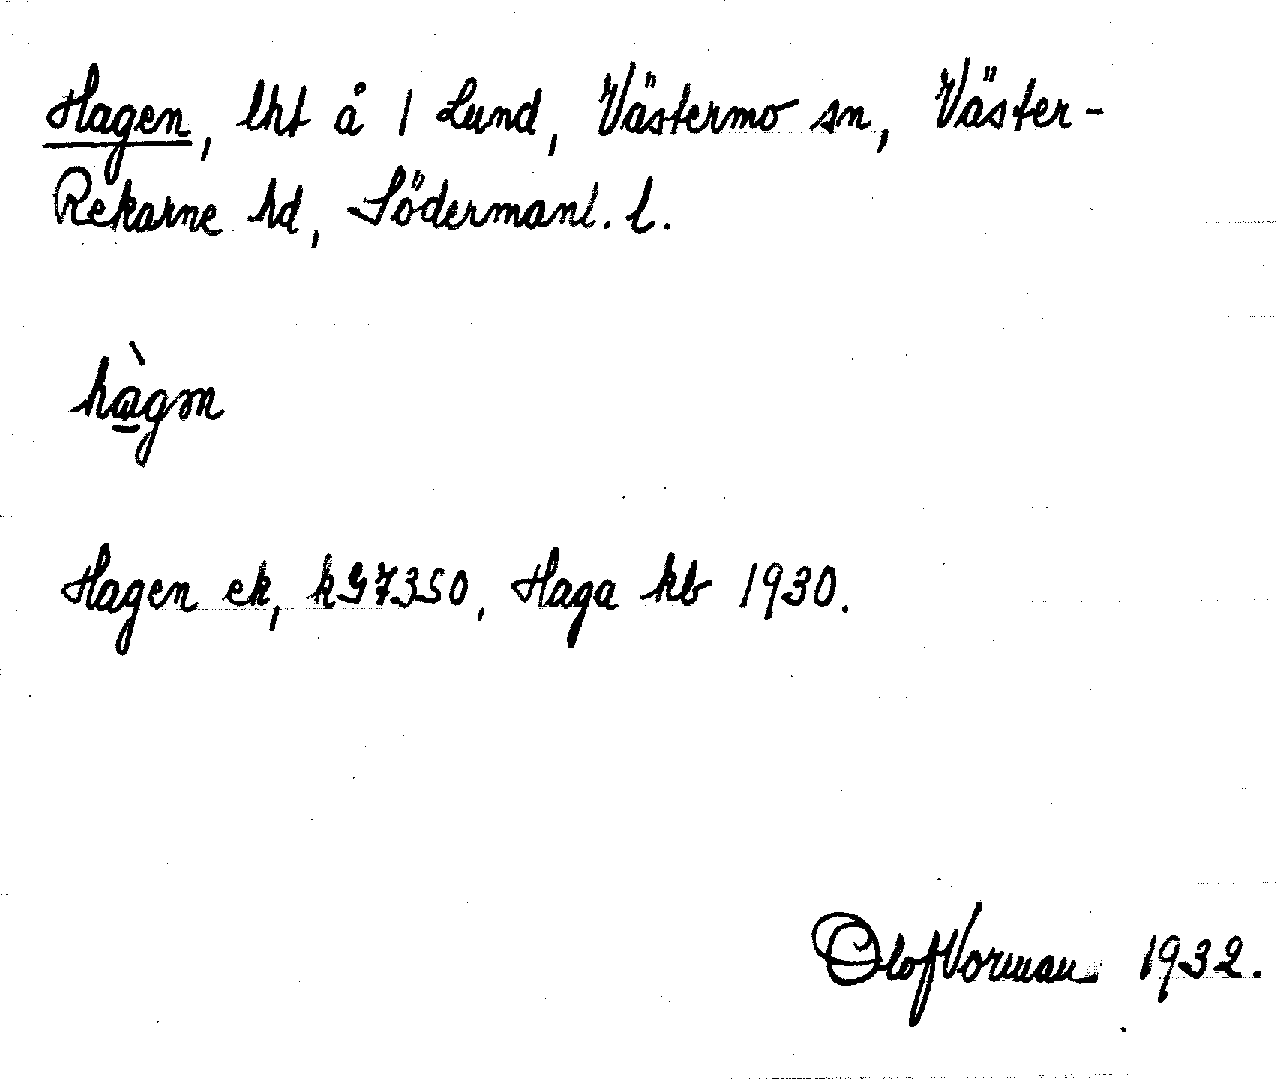 Hagen, lht å 1 Lund, Västermo sn, Väster-
Rekarne hd, Södermanl. l.
hàgən
Hagen ek, kG7350, Haga kb 1930.
Olof Vorman 1932.